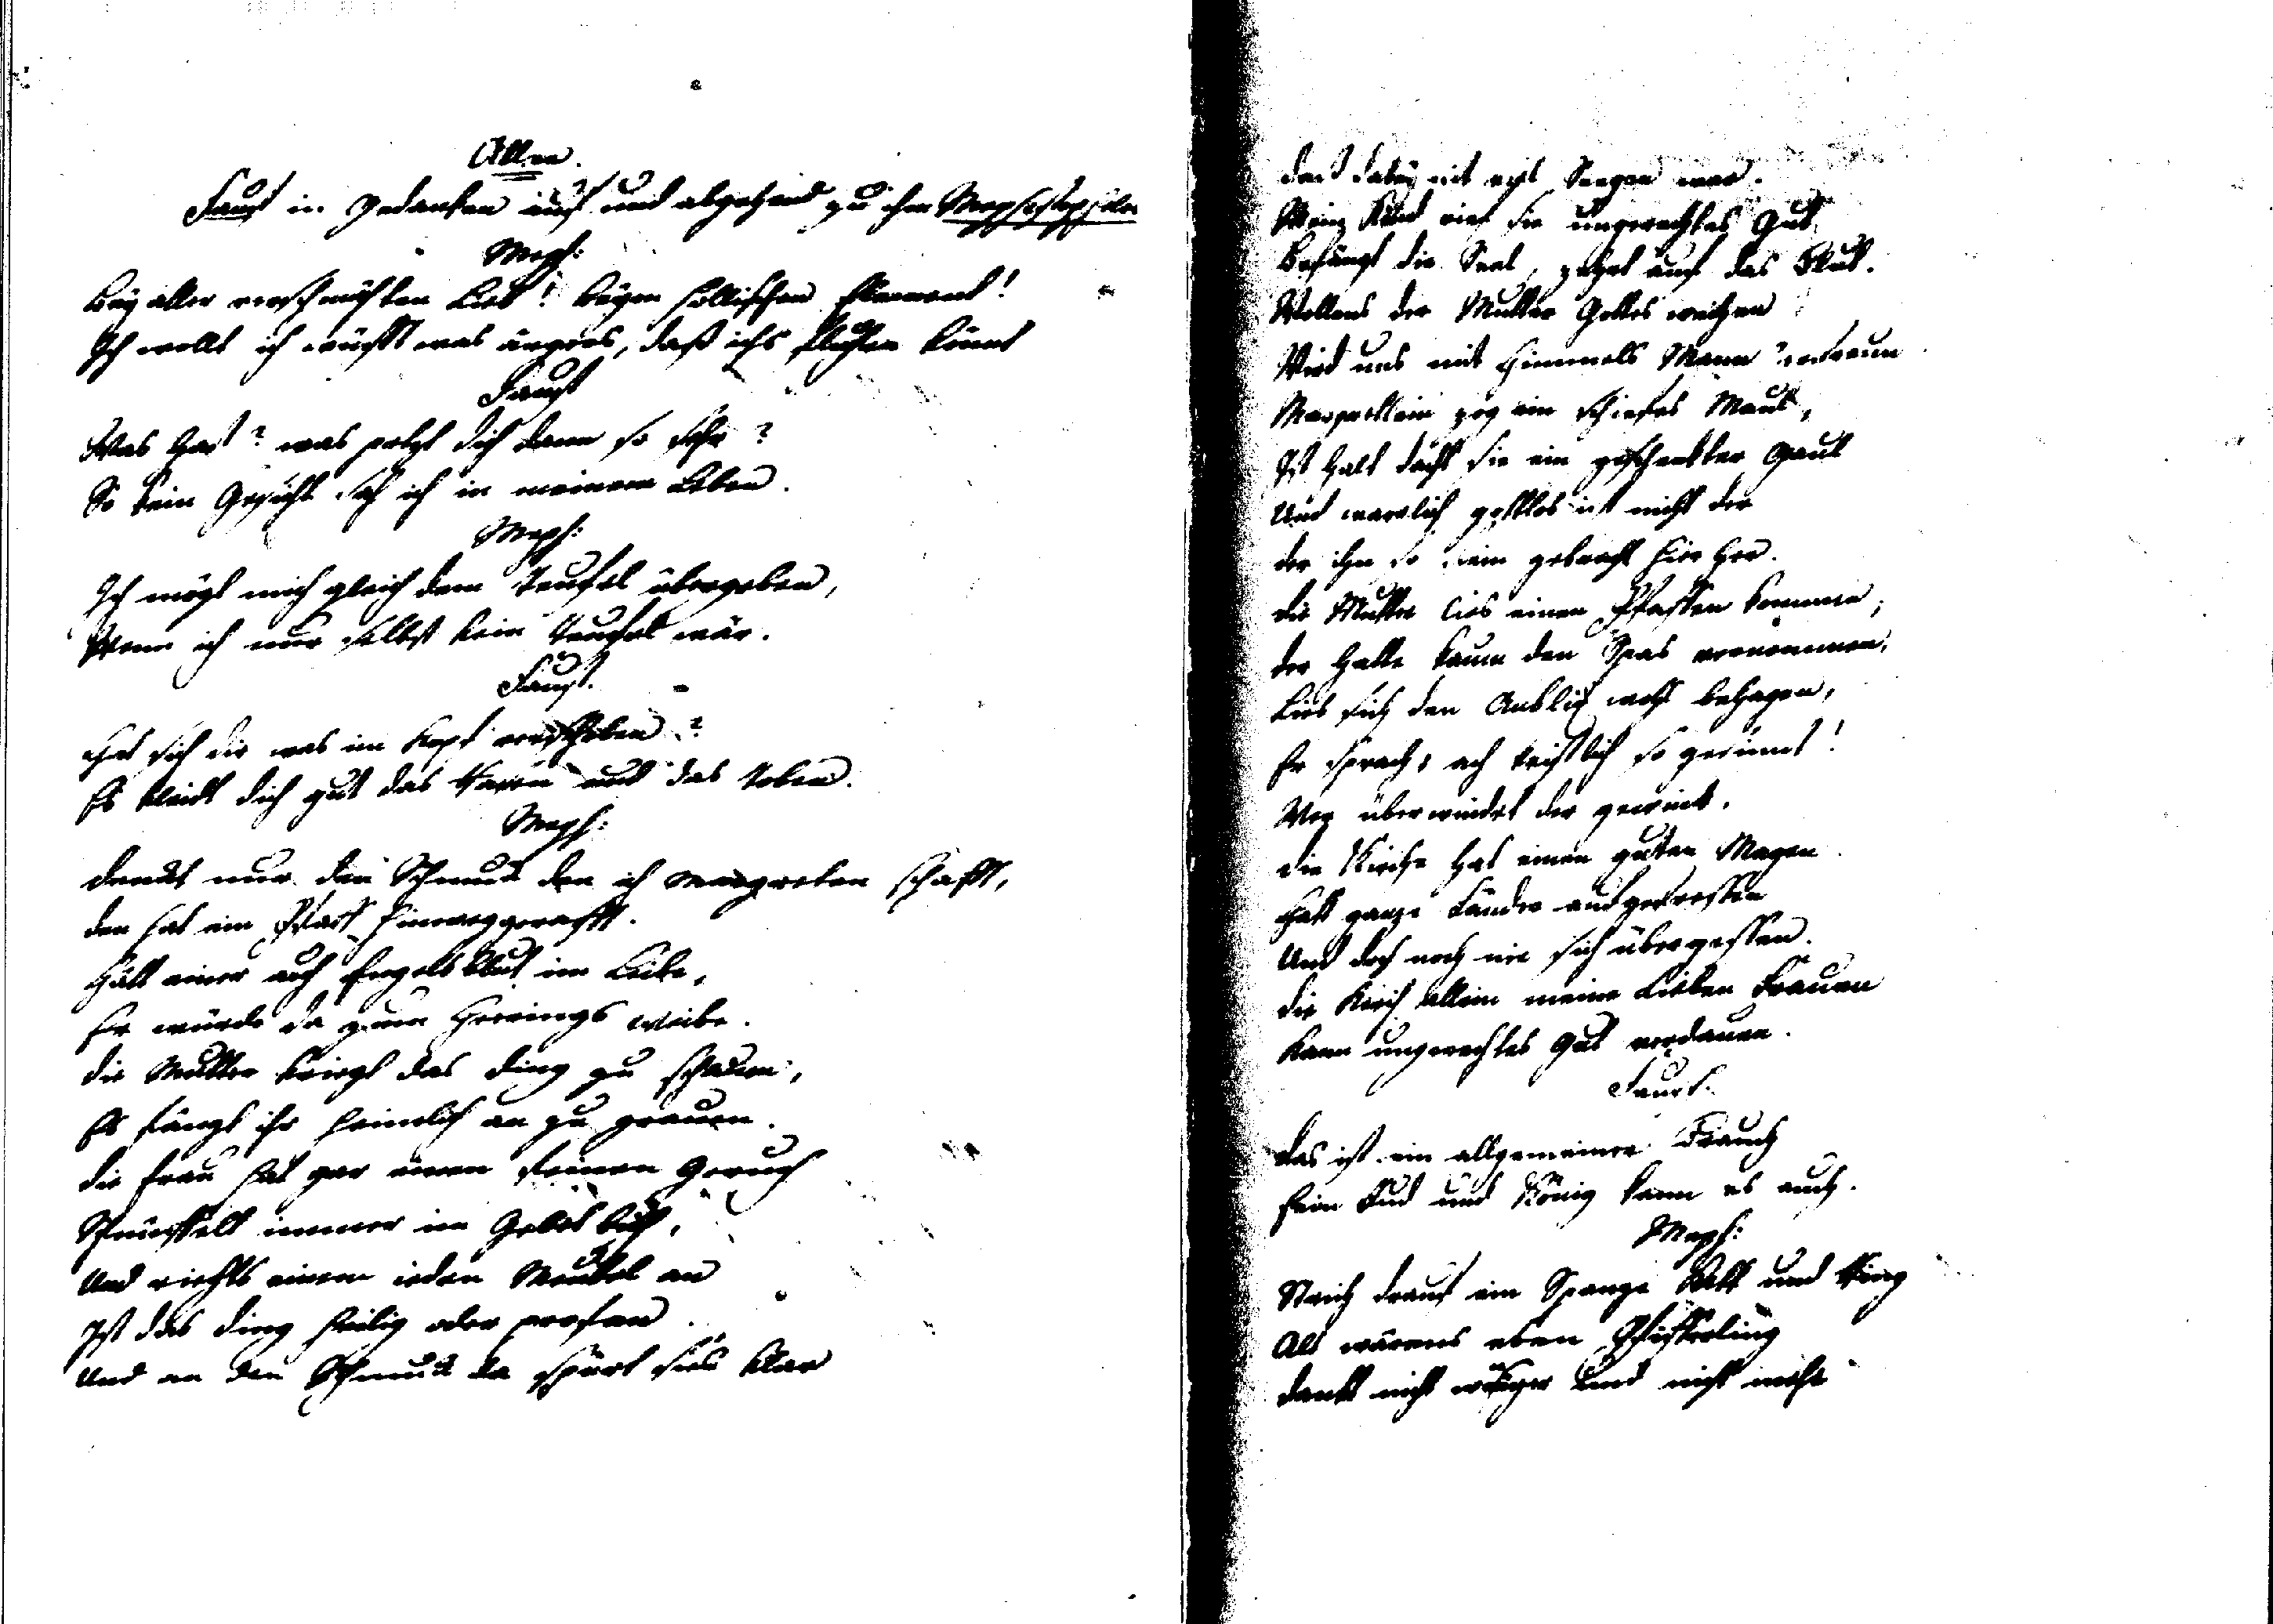 Allee.
Faust in Gedanken auf und abgehend zu ihm Mephistopheles
Meph:
Bey aller verschmähten Lieb! beym höllischen Element!
Ich wollt ich wüsst was ärgers, daß ichs fluchen könnt
Faust
Was hast? was petzt dich dann so sehr?
So kein Gesicht sah ich in meinem Leben.
Meph:
Ich mögt mich gleich dem Teufel übergeben,
Wenn ich nur selbst kein Teufel wär.
Faust.
Hat sich dir was im Kopf verschoben?
Es kleidt dich gut das Rasen und das Toben.
Meph:
Denckt nur den Schmuck den ich Margreten schafft,
den hat ein Pfaff hinweggerafft.
Hätt einer auch Engelsblut im Leibe,
Er würde da zum Heerings weibe.
die Mutter kriegt das Ding zu schauen,
Es fängt ihr heimlich an zu grauen.
die Frau hat gar einen feinen Geruch
Schnüffelt immer im Gebet buch,
Und riechts einem ieden Meubel an
Ist das Ding heilig oder profan.
Und an dem Schmuck da spürt sies klar
das dabey nit viel Seegen war.
Mein Kind rief sie ungerechtes Gut
Befängt die Seel, zehrt auf das Blut.
Wollens der Mutter Gottes weihen
Wird uns mit Himmels Mann erfreun
Margretlein zog ein schiefes Maul,
Ist halt dacht sie ein geschenckter Gaul
Und warrlich gottlos ist nicht der
der ihn so fein gebracht hier her.
die Mutter lies einen Pfaffen kommen,
der hatte kaum den Spas vernommen,
Lies sich den Anblick wohl behagen,
Er sprach: ach kristlich so gesinnt!
Wer überwindet der gewinnt.
die Kirche hat einen guten Magen
Hat ganze Länder aufgefressen
Und doch noch nie sich übergessen.
die Kirch allein meine lieben Frauen
kann ungerechtes Gut verdauen.
Faust.
das ist ein allgemeiner Brauch
Ein Jud und König kann es auch.
Meph:
Strich drauf ein Spange Kett und Ring
Als wärens eben Pfifferling
danckt nicht weniger und nicht mehr